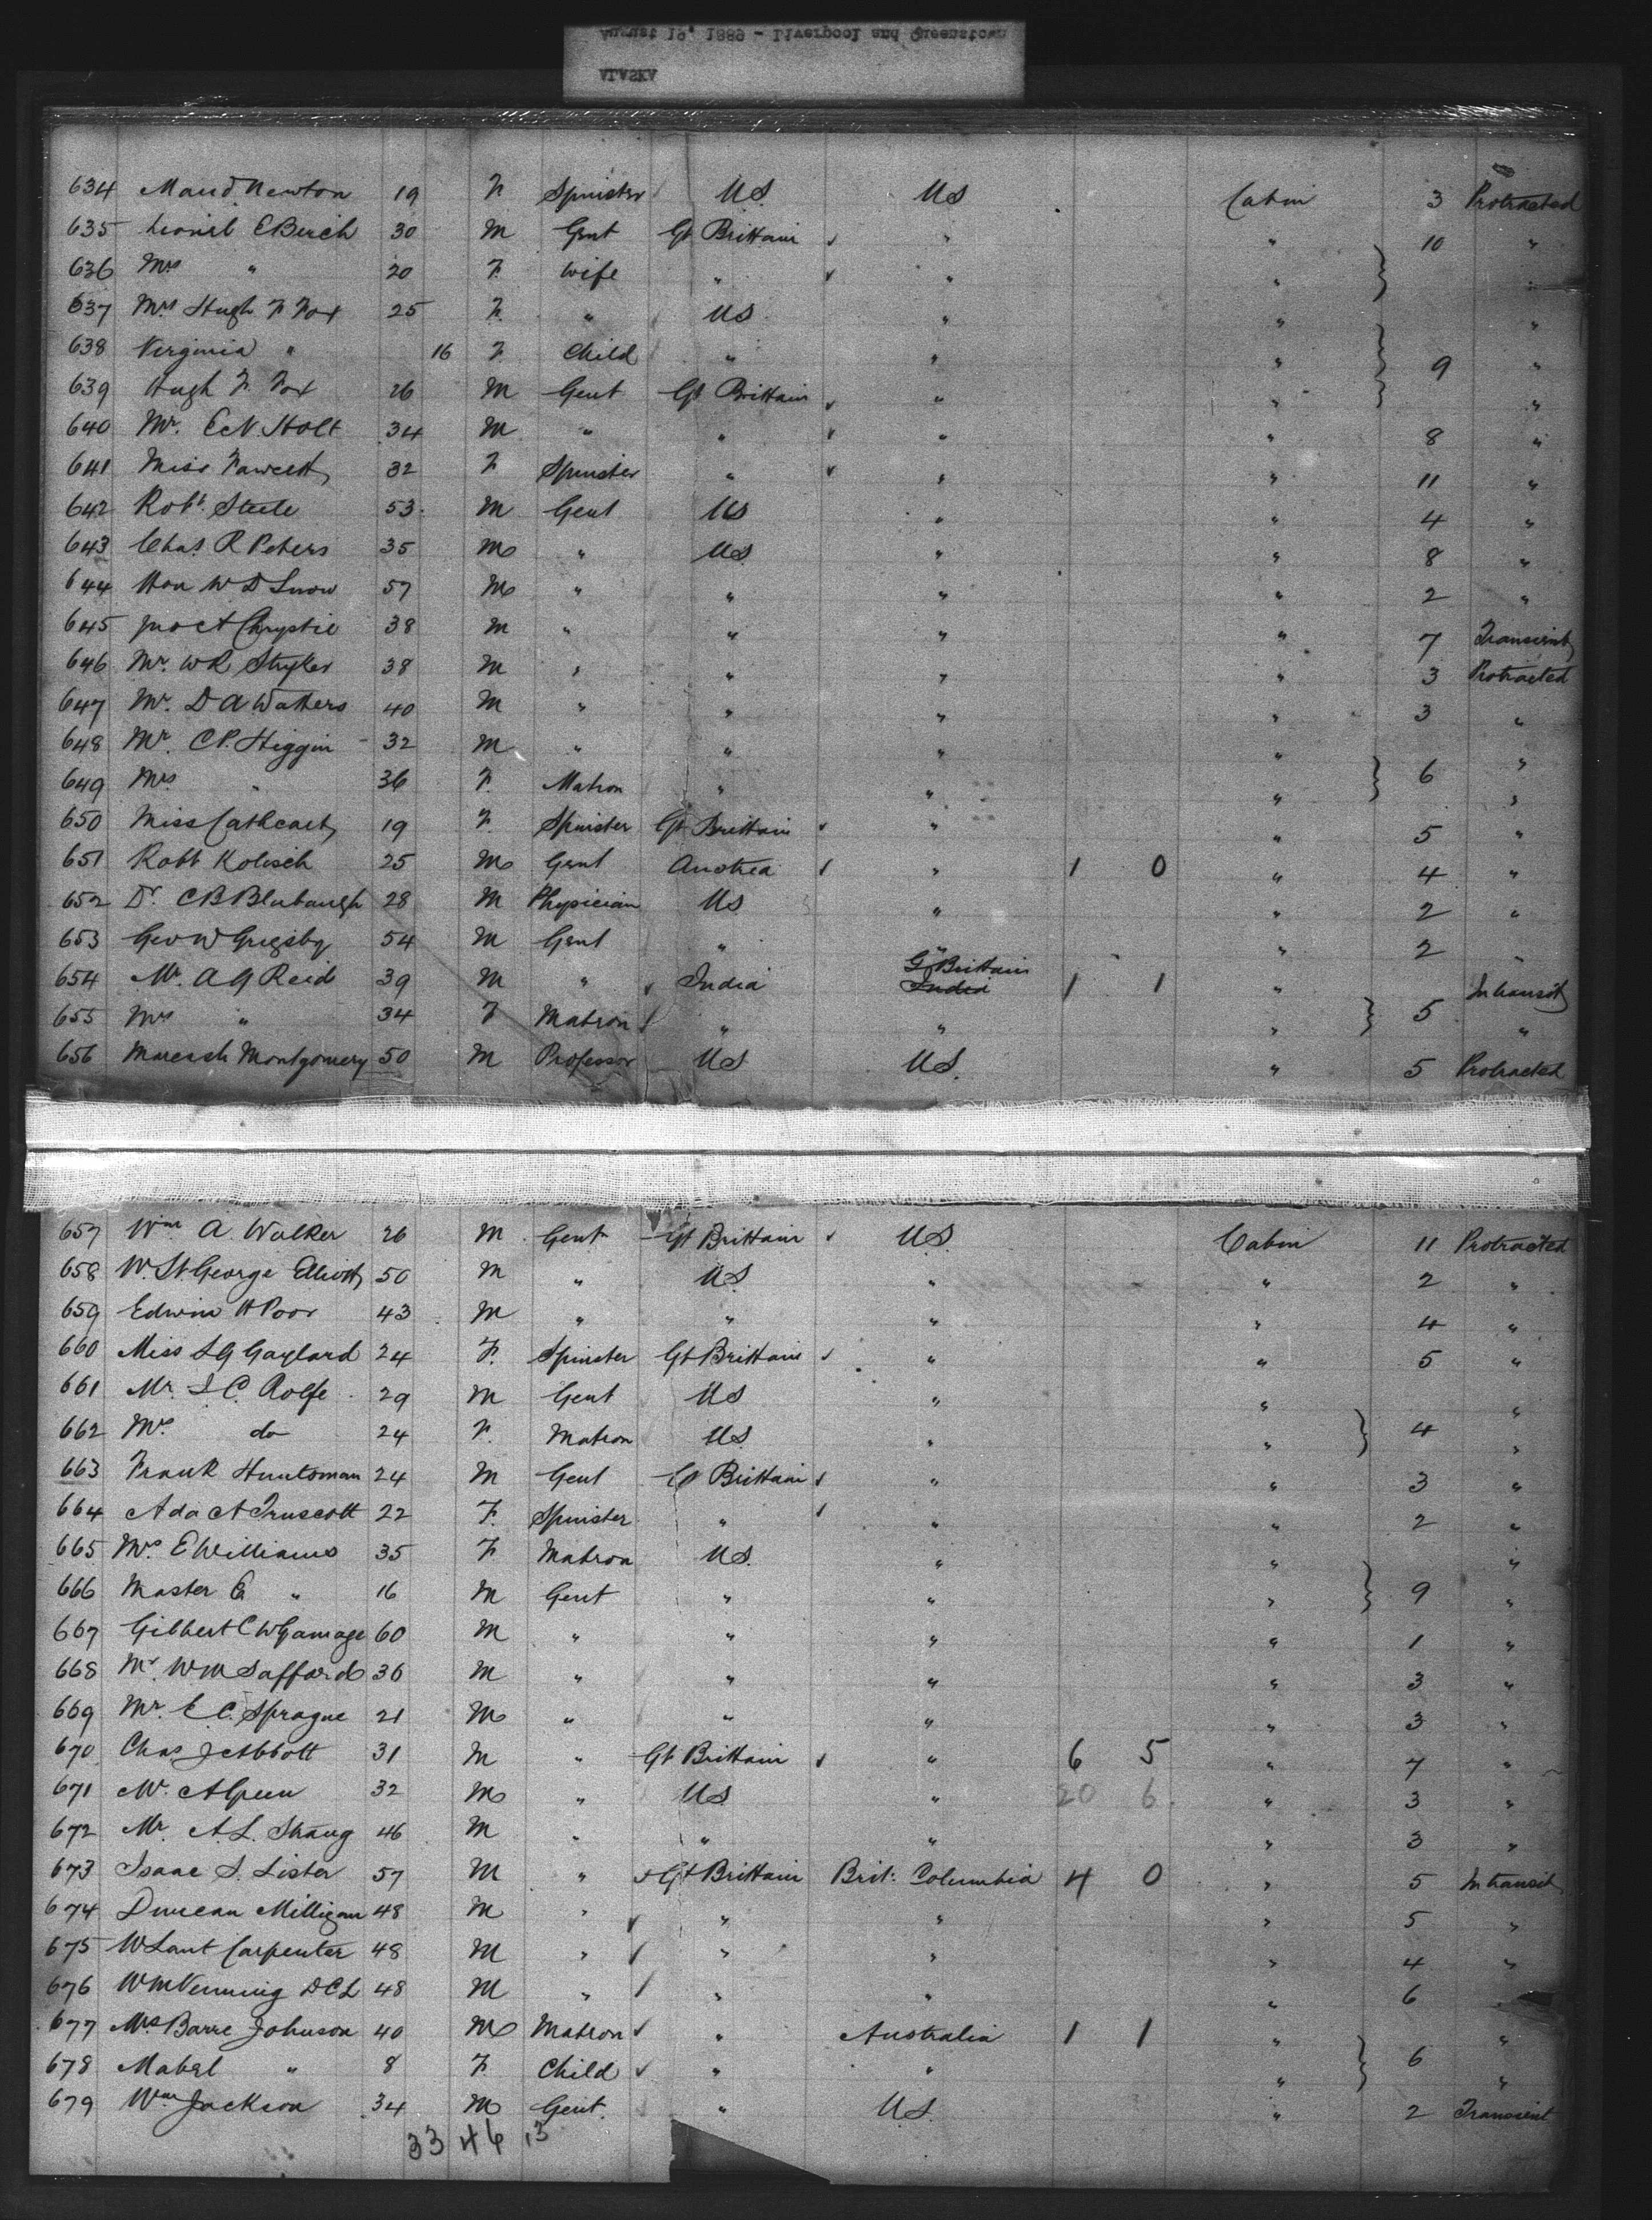 August 19, 1889 - Liverpool and Queenstown
ALASKA
634 Maud Newton 19 F Spinster U.S. US Cabin 3 Protracted
635 Lionel E Birch 30 M Gent Gt Brittain " " 10 "
636 Mrs " 20 F. Wife " " " "
637 Mrs Hugh F Fox 25 F. " US " " "
638 Virginia " 16 F Child " " " 9 "
639 Hugh F. Fox 26 M Gent Gt Brittain " " "
640 Mr. E N. Holt 34 M " " " " 8 "
641 Miss Fawcett 32 F Spinster " " " 11 "
642 Robt. Steele 53 M Gent US " " 4 "
643 Chas. R Peters 35 M " US. " " 8 "
644 Hon W D Snow 57 M " " " " 2 "
645 Jno A Chrystie 38 M " " " " 7 Transient
646 Mr. W R Stryker 38 M " " " " 3 Protracted
647 Mr. D A Watters 40 M " " " " 3 "
648 Mr. C P. Higgin 32 M " " " " 6 "
649 Mrs " 36 F. Matron " " " "
650 Miss Cathcart 19 F. Spinster Gt Brittain " " 5 "
651 Robt Kolisch 25 M Gent Austria " 1 0 " 4 "
652 Dr. C B Blubaugh 28 M Physician US " " 2 "
653 Geo W Grigsby 54 M Gent " " " 2 "
654 Mr. A G Reid 39 M " India G Brittain India 1 1 " 5 In transit
655 Mrs " 34 F Matron " " " "
656 Montgomery 50 M Professor US US. " 5 Protracted
657 Wm A. Walker 26 M Gent Gt Brittain U.S. Cabin 11 Protracted
658 W. St. George Elliott 50 M " U.S. " " 2 "
659 Edwin H Poor 43 M " " " " 4 "
660 Miss L G Gaylard 24 F. Spinster Gt Brittain " " 5 "
661 Mr. L C. Rolfe 29 M Gent US " " "
662 Mrs do 24 F. Matron U.S. " " 4 "
663 Frank Huntsman 24 M Gent Gt Brittain " " 3 "
664 Ada A Truscott 22 F. Spinster " " " 2 "
665 Mrs E Williams 35 F Matron U.S. " " "
666 Master E " 16 M Gent " " " 9 "
667 Gilbert C W Gamage 60 M " " " " 1 "
668 Mr. W M Safford 36 M " " " " 3 "
669 Mr. E C. Sprague 21 M " " " " 3 "
670 Chas J Abbott 31 M " Gt Brittain " 6 5 " 7 "
671 Mr. 32 M " U.S. " 20 6 " 3 "
672 Mr. A. L. Strang 46 M " " " " 3 "
673 Isaac S. Lister 57 M " Gt Brittain Brit. Columbia 4 0 " 5 In transit
674 Duncan Milligan 48 M " " " " 5 "
675 W Lant Carpenter 48 M " " " " 4 "
676 W M Venning D C L 48 M " " " " 6 "
677 Mrs Barre Johnson 40 M Matron " Australia 1 1 " 6 "
678 Mabel " 8 F Child " " " "
679 Wm Jackson 34 M Gent. " U.S. " 2 Transient
33 46 13